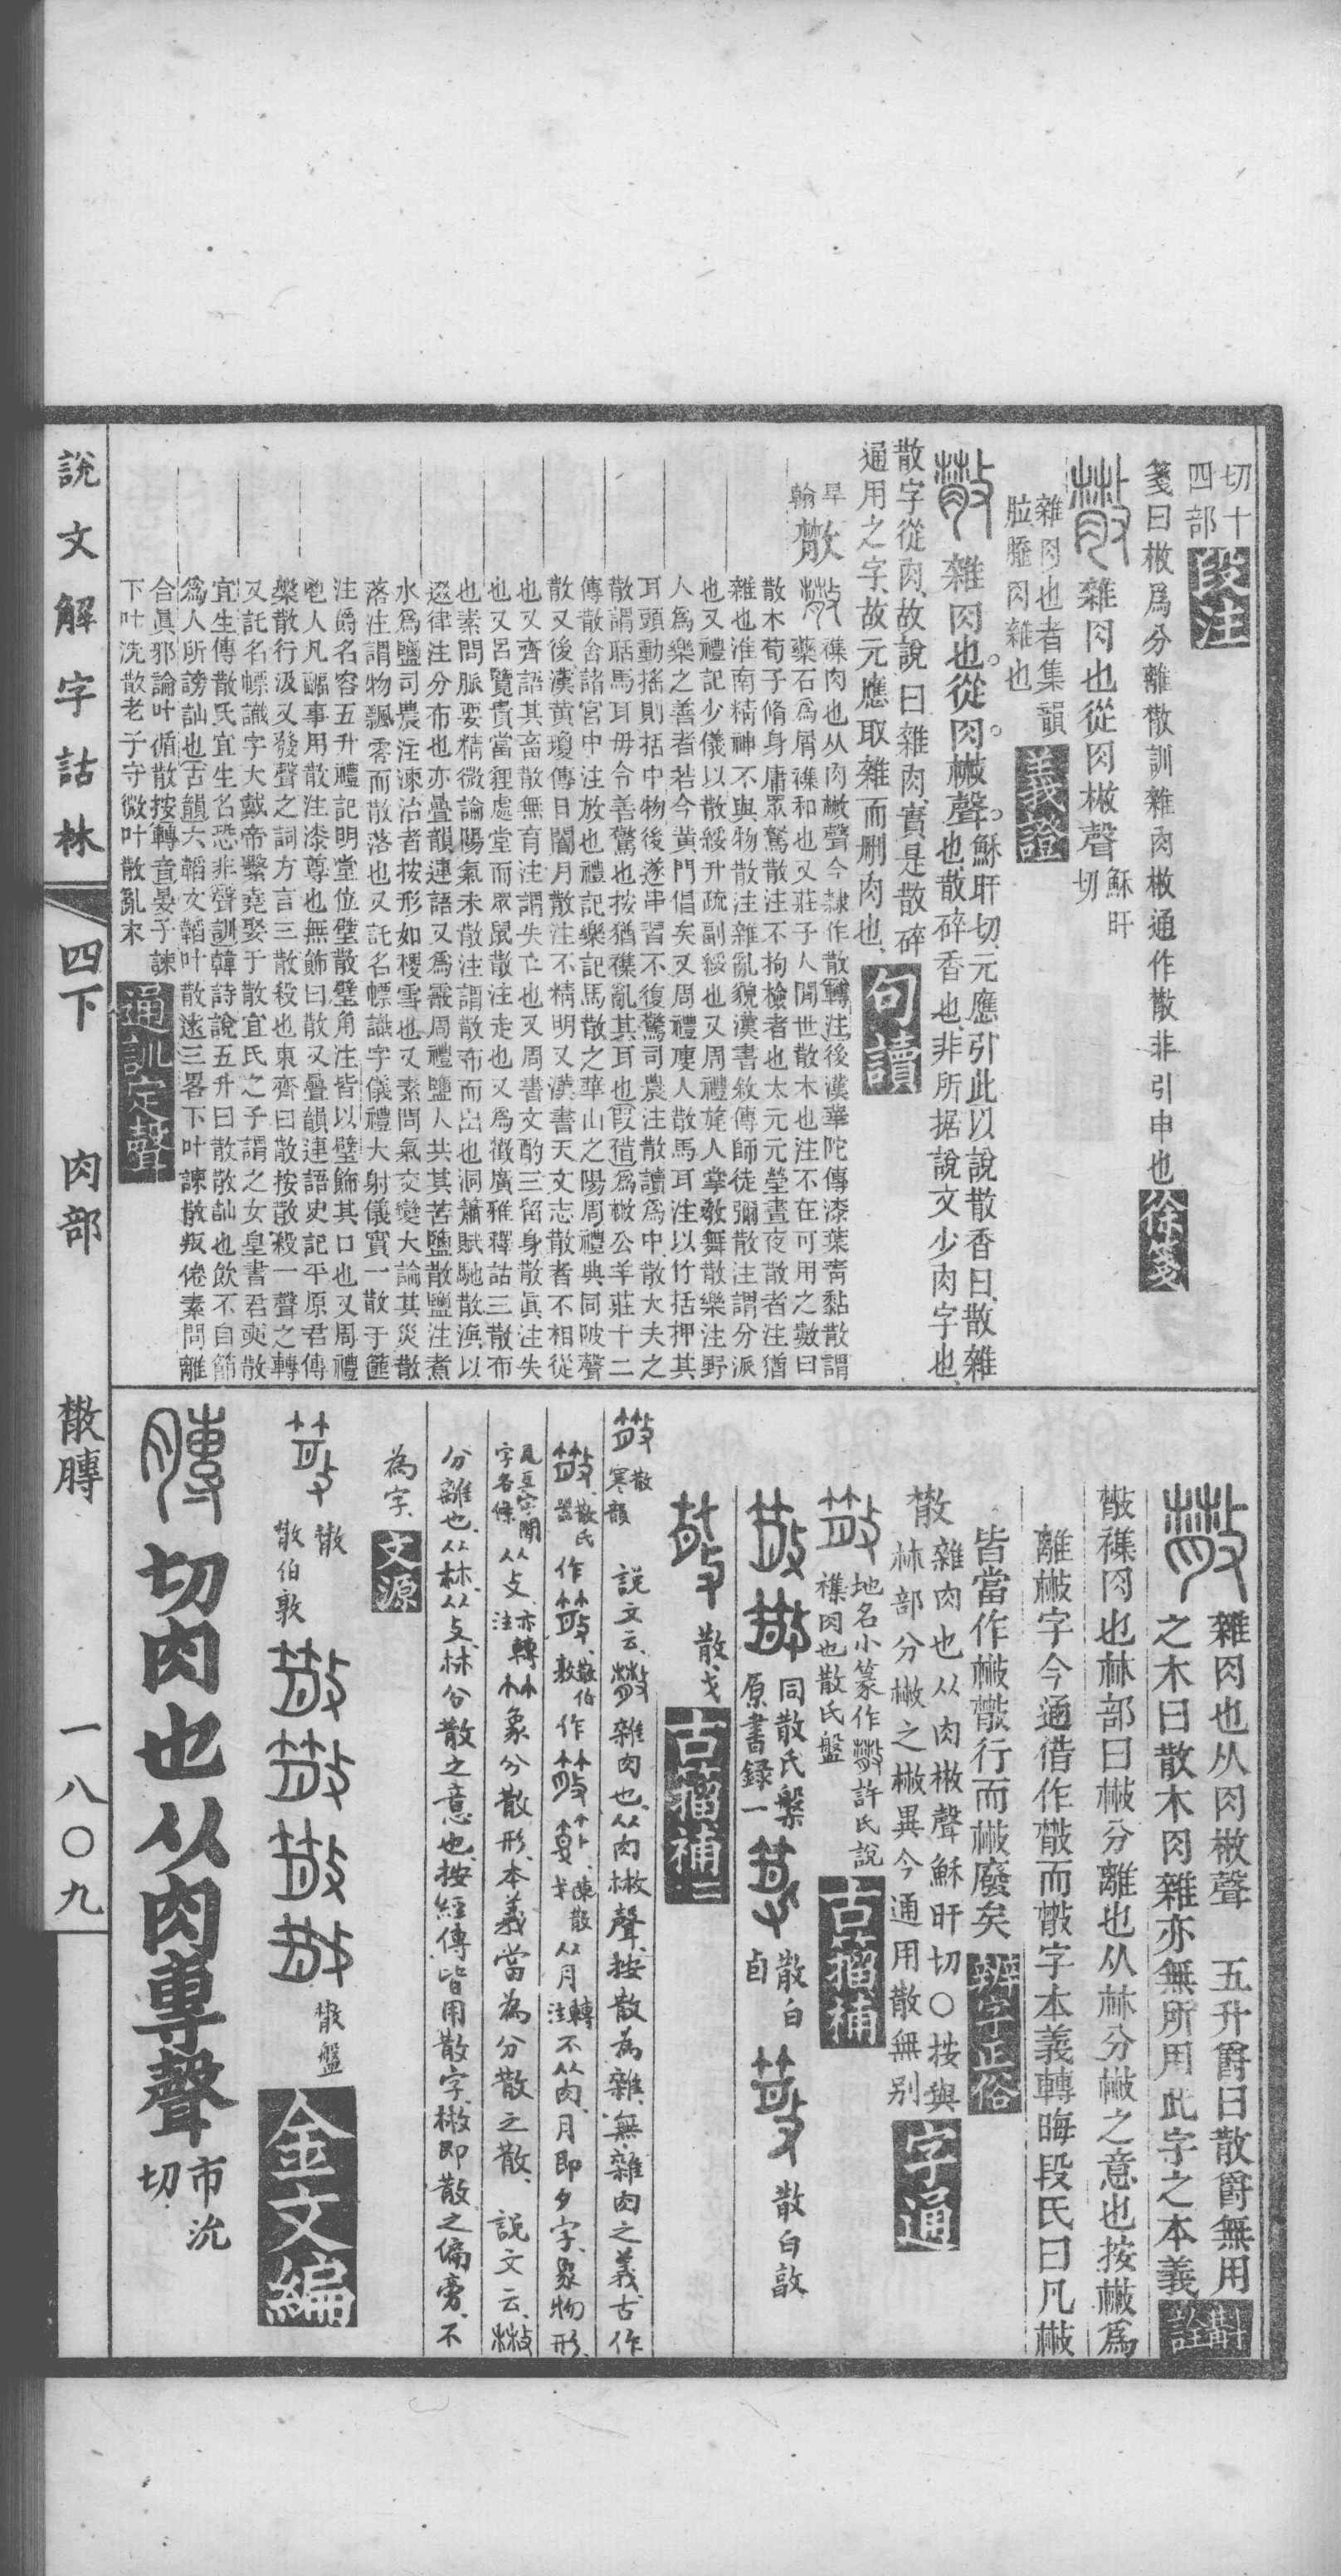 切十
四部
段注
箋曰㪔爲分離㪔訓雜肉㪔通作散非引申也
徐箋
雜肉也從肉㪔聲
穌旰
切
雜肉也者集韻
肉雜也
義證
雜肉也。從肉。㪔聲。
穌旰切、元應引此以說散香曰、散雜
也、散碎香也、非所据說文少肉字也、
散字從肉、故說曰雜肉、實是散碎
通用之字、故元應取雜而刪肉也、
句讀
旱
翰
襍肉也从肉㪔聲今隸作散轉注後漢華陀傳漆葉靑黏散謂
藥石爲屑襍和也又莊子人閒世散木也注不在可用之數曰
散木荀子脩身庸眾駑散注不拘檢者也太元元瑩晝夜散者注猶
雜也淮南精神不與物散注雜亂貌漢書敘傳師徒彌散注謂分派
也又禮記少儀以散綏升疏副綏也又周禮旄人掌敎舞散樂注野
人爲樂之善者若今黄門倡矣又周禮廋人散馬耳注以竹括押其
耳頭動搖則括中物後遂串習不復驚司農注散讀爲中散大夫之
散謂聒馬耳毋令善驚也按猶襍亂其耳也叚借爲㪔公羊莊十二
傳散舍諸宮中注放也禮記樂記馬散之華山之陽周禮典同陂聲
散又後漢黄瓊傳日闇月散注不精明又漢書天文志散者不相從
也又齊語其畜散無育注謂失亡也又周書文酌三畱身散眞注失
也又呂覽貴當貍處堂而眾鼠散注走也又爲徹廣雅釋詁三散布
也素問脈要精微論陽氣未散注謂散布而出也洞簫賦馳散渙以
逫律注分布也亦疊韻連語又爲霰周禮鹽人共其苦鹽散鹽注煮
水爲鹽司農注湅治者按形如稷雪也又素問氣交變大論其災散
落注謂物飄零而散落也又託名幖識字儀禮大射儀實一散于篚
注爵名容五升禮記明堂位璧散璧角注皆以璧飾其口也又周禮
鬯人凡疈事用散注漆尊也無飾曰散又疊韻連語史記平原君傳
槃散行汲又發聲之詞方言三散殺也東齊曰散按散殺一聲之轉
又託名幖識字大戴帝繫堯娶于散宜氏之子謂之女皇書君奭散
宜生傳散氏宜生名恐非聲訓韓詩說五升曰散散訕也飮不自節
爲人所謗訕也古韻六韜文韜叶散遠三畧下叶諫散叛倦素問離
合眞邪論叶循散按轉音晏子諫
下叶洗散老子守微叶散亂末
通訓定聲
雜肉也从肉㪔聲 五升爵曰散爵無用
之木曰散木肉雜亦無所用此字之本義
斠詮
襍肉也𣏟部曰㪔分離也从𣏟分㪔之意也按㪔爲
離㪔字今通借作散而散字本義轉晦段氏曰凡㪔
皆當作㪔散行而㪔廢矣
辨字正俗
雜肉也从肉㪔聲穌旰切〇按與
𣏟部分㪔之㪔異今通用散無别
字通
地名小篆作散許氏說
襍肉也散氏盤
古籀補
同散氏槃
原書錄一
散白
卣
散白敦
散戈
古籀補二
散
寒韻
說文云、散雜肉也、从肉㪔聲、按散爲雜、無雜肉之義、古作
散氏
器
作
散伯
敦
作
陳散
戈
从月
轉
注
不从肉、月即夕字、象物形、
从攴
亦轉
注
象分散形、本義當為分散之散、 說文云、㪔
分離也、从𣏟、从攴、𣏟分散之意也、按經傳皆用散字、㪔即散之偏旁、不
為字、
文源
散
散伯敦
散盤
金文編
切肉也从肉專聲
市沇
切
說文解字詁林 四下 肉部 散膞 一八〇九